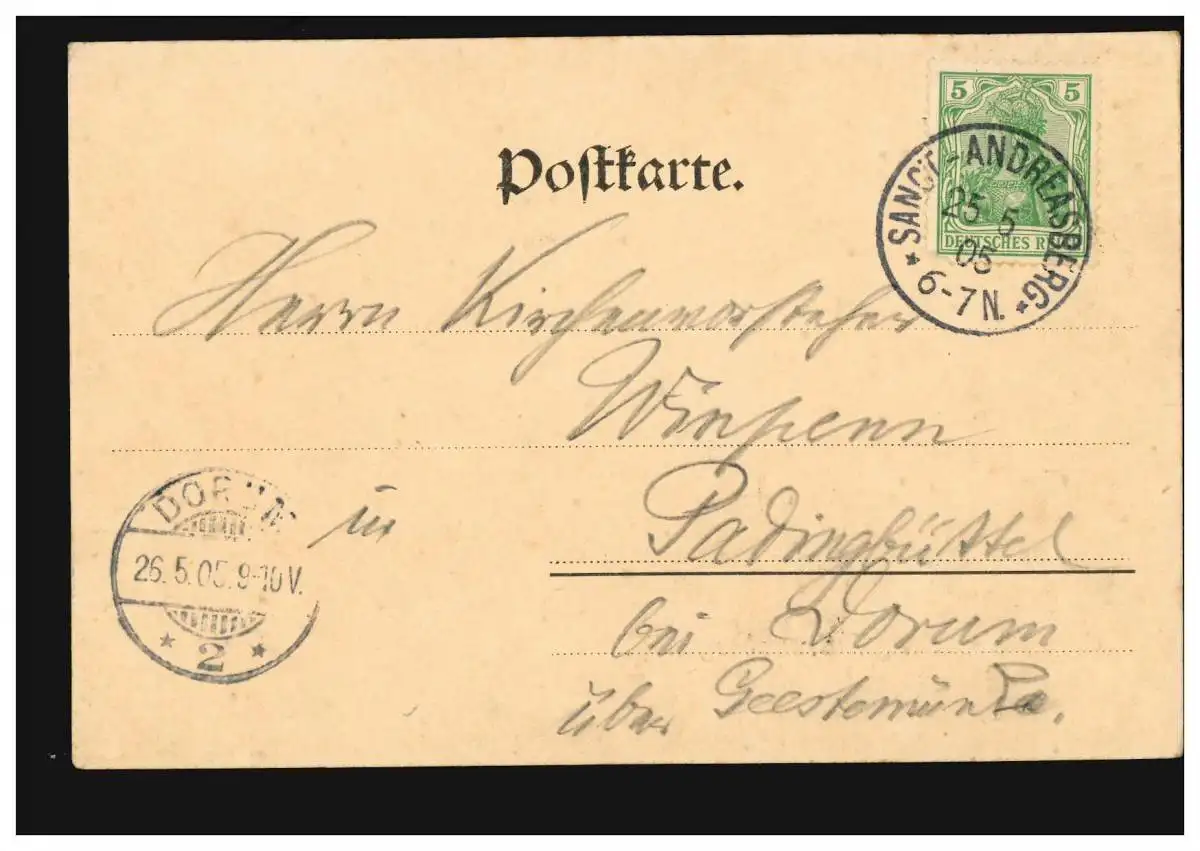 5 5
DEUTSCHES RE
SANCT-ANDREASBERG
25 5
05
6-7N.
Postkarte.
Herrn Kirchenvorsteher
Winpenn
in Padingbüttel
bei Dorum
über Geestemünde.
DORUM
26.5.05.9-10V.
2